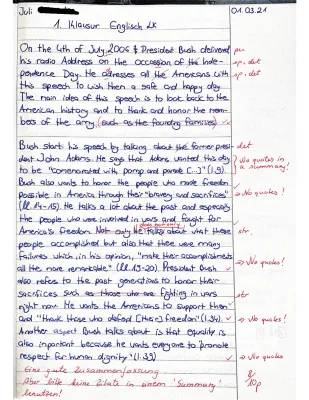 Juli
01.03.21
1. Klausur Englisch Lk
On the 4th of July, 2006 President Bush delivered
his radio Address on the occassion of the Inde-
pendence Day. He adresses all the Americans with
this speech to wish them a safe and happy day.
The main idea of this speech is to look back to the
American history and to thank and honor the mem-
bers of the army. (such as the founding families)
Bush starts his speech by talking about the former presi-
dent John Adams. He says that Adams wanted this day
to be "comemorated with pomp and parade (...)" (l.9).
Bush also wants to honor the people who made freedom
possible in America through their "bravery and sacrifices"
(ll. 14-15). He talks a lot about the past and especially
the people who were involved in wars and fought for
America's freedom. Not only He talks about what these
does not only
people accomplished but also that there were many
failures which, in his opinion, "make their accomplishments
all the more remarkable" (ll. 19-20). President Bush
also refers to the past generations to honor their
sacrifices such as those who are fighting in wars
right now. He wants the Americans to support them
and "thank those who defend [their] freedom" (l.34).
Another aspect Bush talks about is that equality is
also important because he wants everyone to "promote
respect for human dignity" (l.39)
Eine gute Zusammenfassung
Aber bitte keine Zitate in einem 'Summary'
benutzen!
sp. det
sp.
det
No quotes in
a summary!
→ No quotes!
str
→ No quotes!
str
→ No quotes!
→ No quotes!
10p